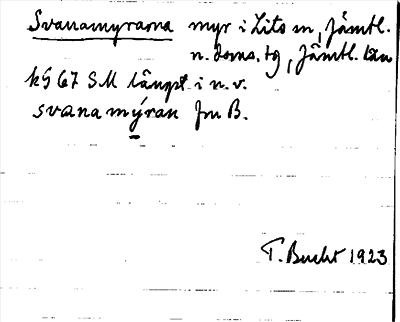 Svanamyrarna myr i Lits sn, Jämtl.
n. doms. tg, Jämtl. län
kš 67 SM längst i n. v.
svanamýran fm B.
T. Bucht 1923